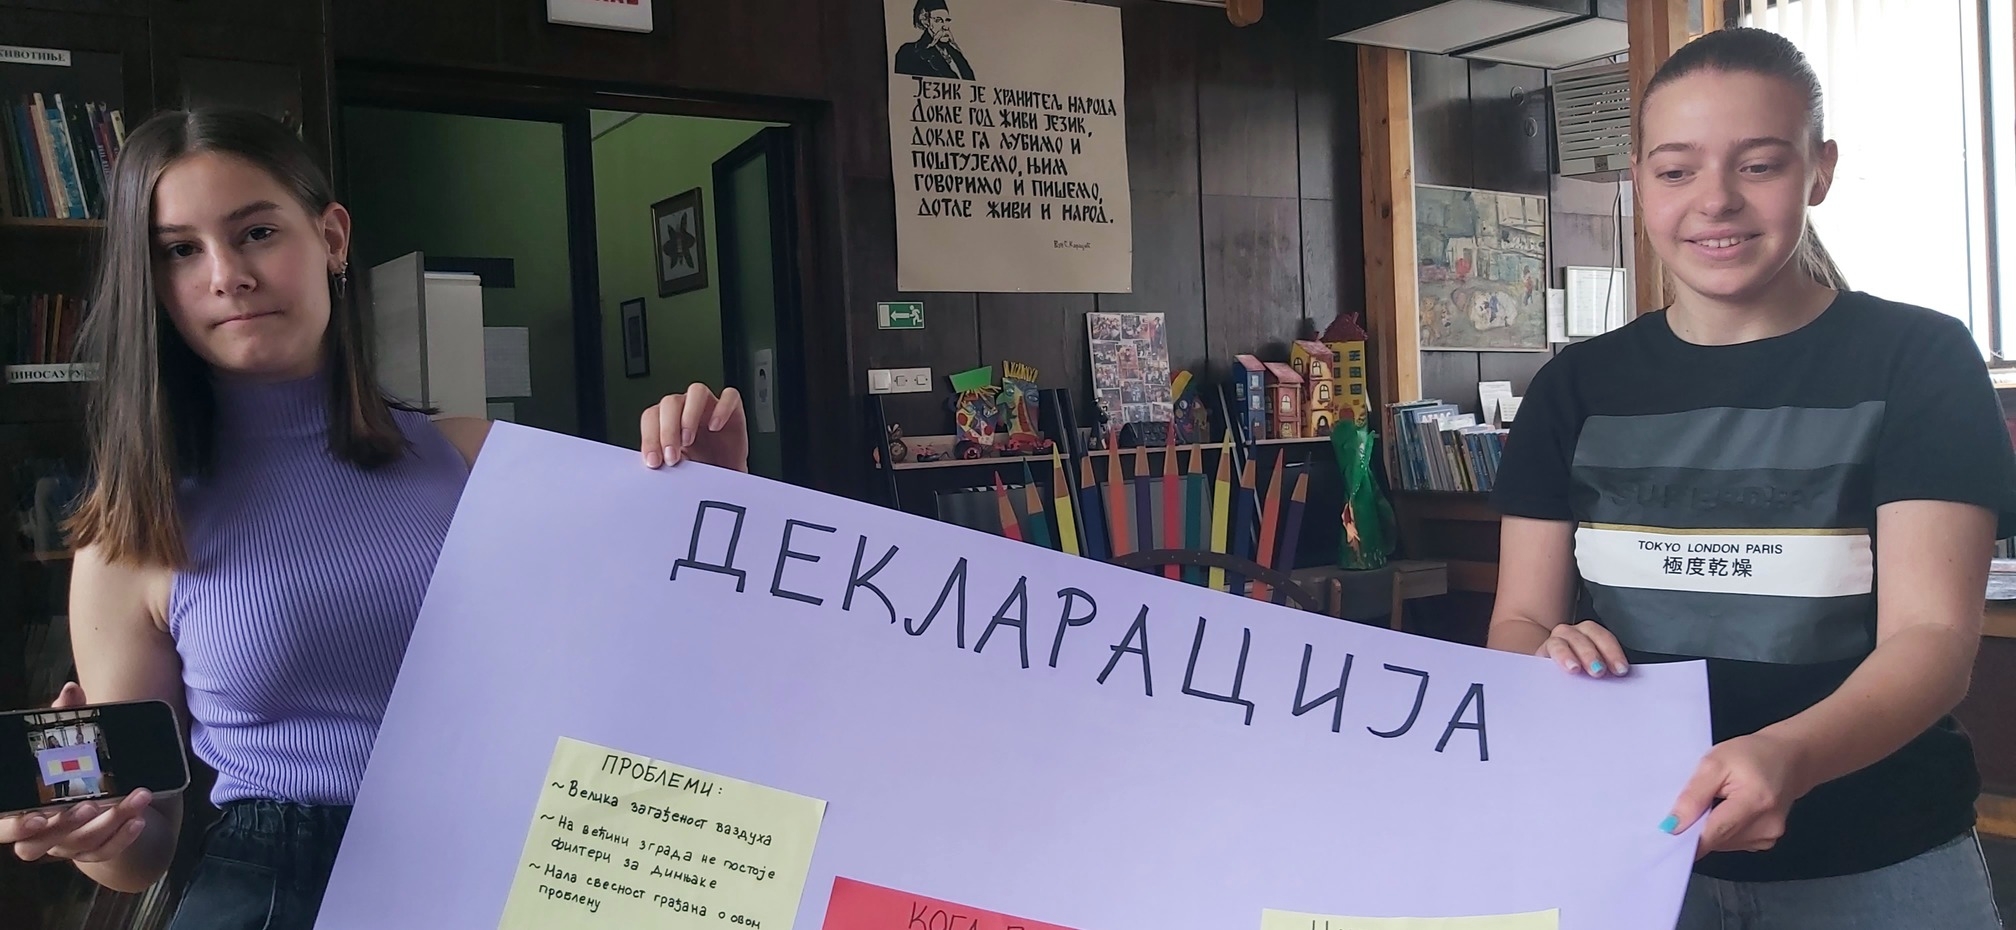 ЈЕЗИК ЈЕ ХРАНИТЕЉ НАРОДА
ДОКЛЕ ГОД ЖИВИ ЈЕЗИК,
ДОКЛЕ ГА ЉУБИМО И
ПОШТУЈЕМО, ЊИМ
ГОВОРИМО И ПИШЕМО,
ДОТЛЕ ЖИВИ И НАРОД.
ДЕКЛАРАЦИЈА
ПРОБЛЕМИ:
~ Велика загађеност ваздуха
~ На већини зграда не постоје
филтери за димњаке
~ Мала свесност грађана о овом
проблему
КОГА
TOKYO LONDON PARIS
極度乾燥
АТЛАС